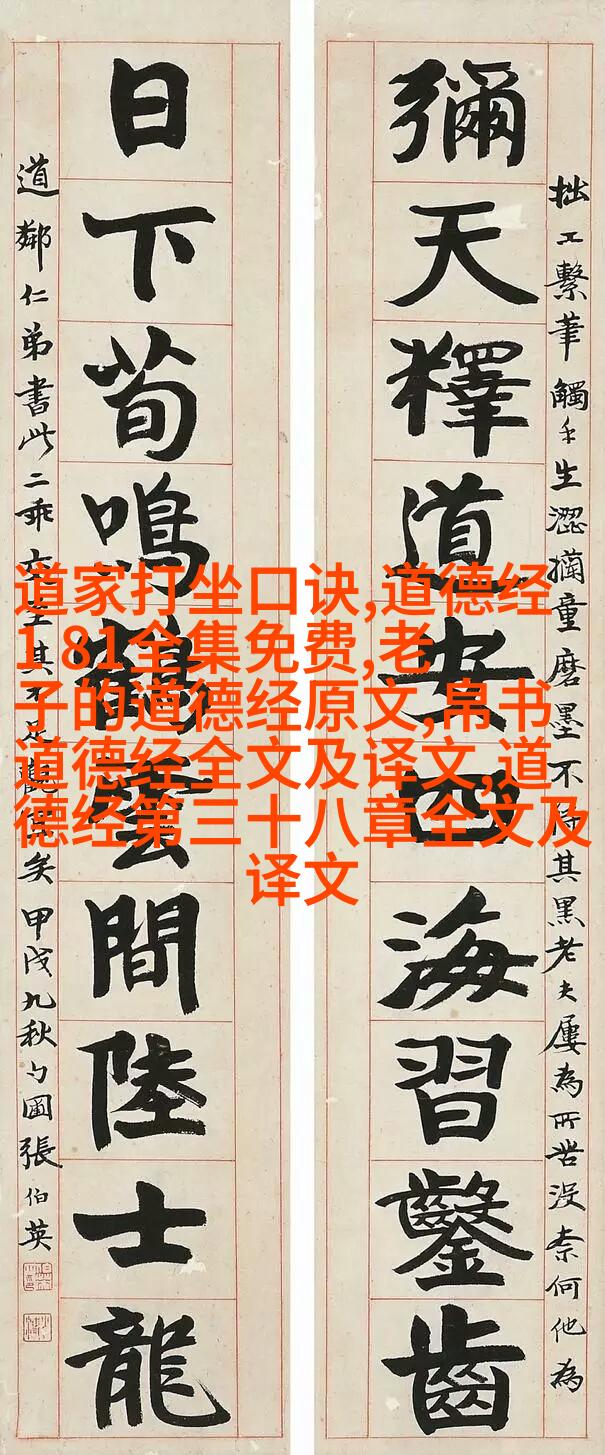 彌天釋道安四海習鑿齒
拙工繫筆觸手生澀擿童磨墨不得其黑老夫屢為所苦沒奈何他為
日下荀鳴鶴雲間陸士龍
道鄰仁弟書此二乖
甲戌九秋勺圃張伯英
道家打坐口诀,道德经
1 81全集免费,老
子的道德经原文,帛书
道德经全文及译文,道
德经第三十八章全文及
译文